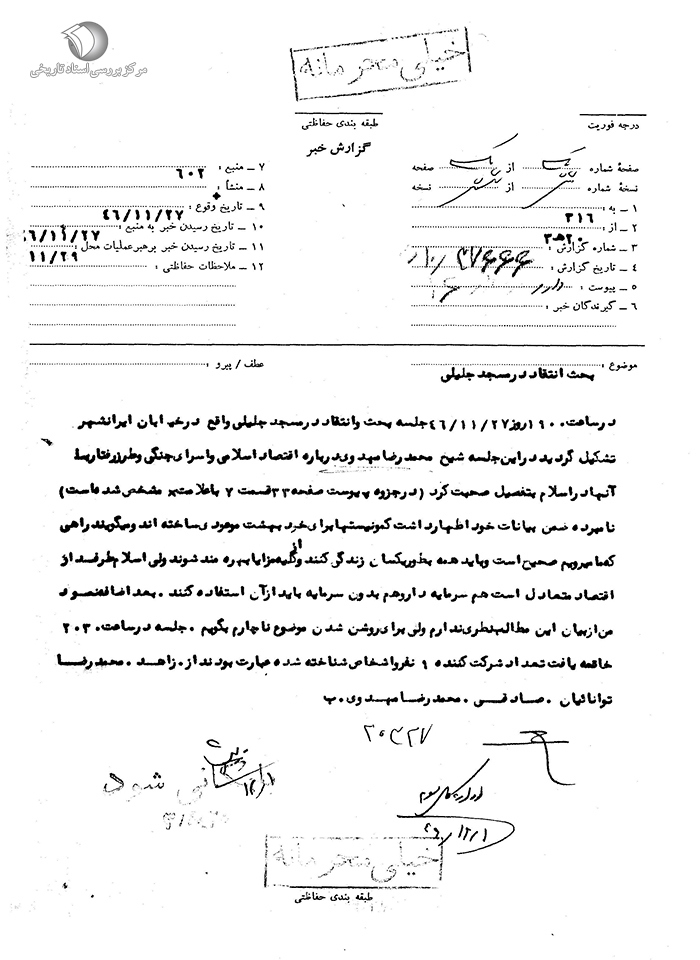 مرکز بررسی اسناد تاریخی
خیلی محرمانه
درجه فوریت
طبقه بندی حفاظتی
گزارش خبر
صفحهٔ شماره یک از یک صفحه
نسخهٔ شماره از نسخه
۱ – به : ۳۱۶
۲ – از : ۲۰ هـ ۳
۳ – شماره گزارش :
۴ – تاریخ گزارش :
۵ – پیوست : دارد
۶ – گیرندگان خبر :
۷ – منبع : ۶۰۲
۸ – منشأ :
۹ – تاریخ وقوع : ۴۶/۱۱/۲۷
۱۰ – تاریخ رسیدن خبر به منبع : ۶/۱۱/۲۷
۱۱ – تاریخ رسیدن خبر برهبرعملیات محل : ۱۱/۲۹
۱۲ – ملاحظات حفاظتی :
موضوع : بحث انتقاد درمسجد جلیلی
عطف / پیرو :
درساعت ۱۹۰۰ روز ۴۶/۱۱/۲۷ جلسه بحث وانتقاد درمسجد جلیلی واقع درخیابان ایرانشهر
تشکیل گردید دراین جلسه شیخ محمدرضا مهدوی درباره اقتصاد اسلامی واسرای جنگی وطرزرفتاربط
آنها دراسلام بتفصیل صحبت کرد (درجزوه پیوست صفحه ۳۳ قسمت ۷ باعلامت × مشخص شده است)
نامبرده ضمن بیانات خود اظهارداشت کمونیستها برای خود بهشت موعودی ساخته اند ومیگویند راهی
که ما میرویم صحیح است وباید همه بطوریکسان زندگی کنند وازکلیه مزایا بهره مند شوند ولی اسلام طرفدار
اقتصاد متعادل است هم سرمایه دار وهم بدون سرمایه باید ازآن استفاده کنند . بعد اضافه نمود
من ازبیان این مطالب نظری ندارم ولی برای روشن شدن موضوع ناچارم بگویم . جلسه درساعت ۲۰۳۰
خاتمه یافت تعداد شرکت کننده ۹ نفرواشخاص شناخته شده عبارت بودند از . زاهد . محمدرضا
توانائیان . صادقی . محمدرضا مهدوی . ب
۲۰۳۲۷
بایگانی شود
۱۲/۱
اداره یکم سوم
۴۶/۱۲/۱
خیلی محرمانه
طبقه بندی حفاظتی